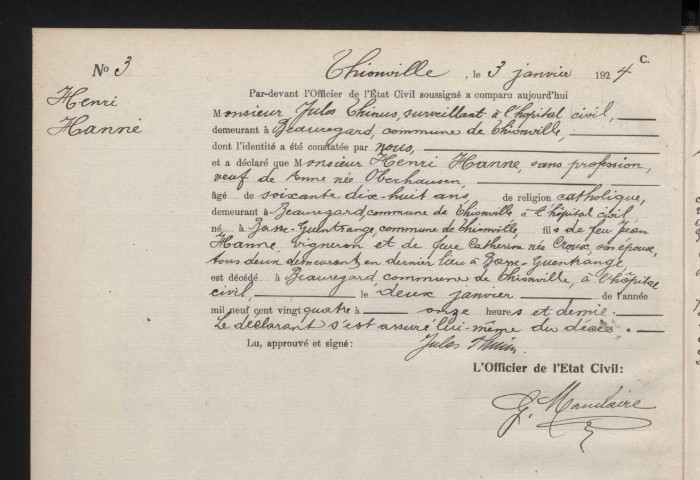 C.
No 3
Thionville, le 3 janvier 1924
Henri
Hanne
Par-devant l'Officier de l'État Civil soussigné a comparu aujourd'hui
Monsieur Jules Thinus, surveillant à l'hôpital civil,
demeurant à Beauregard, commune de Thionville,
dont l'identité a été constatée par nous,
et a déclaré que Monsieur Henri Hanne, sans profession,
veuf de Anne née Oberhausen,
âgé de soixante dix-huit ans, de religion catholique,
demeurant à Beauregard, commune de Thionville à l'hôpital civil,
né à Basse-Guentrange, commune de Thionville fils de feu Jean
Hanne, vigneron et de feue Catherine née Croux, son épouse,
tous deux demeurant en dernier lieu à Basse-Guentrange,
est décédé à Beauregard commune de Thionville, à l'hôpital
civil, le deux janvier de l'année
mil neuf cent vingt quatre à onze heures et demie.
Le déclarant s'est assuré lui-même du décès.
Lu, approuvé et signé: Jules Thinus
L'Officier de l'Etat Civil: